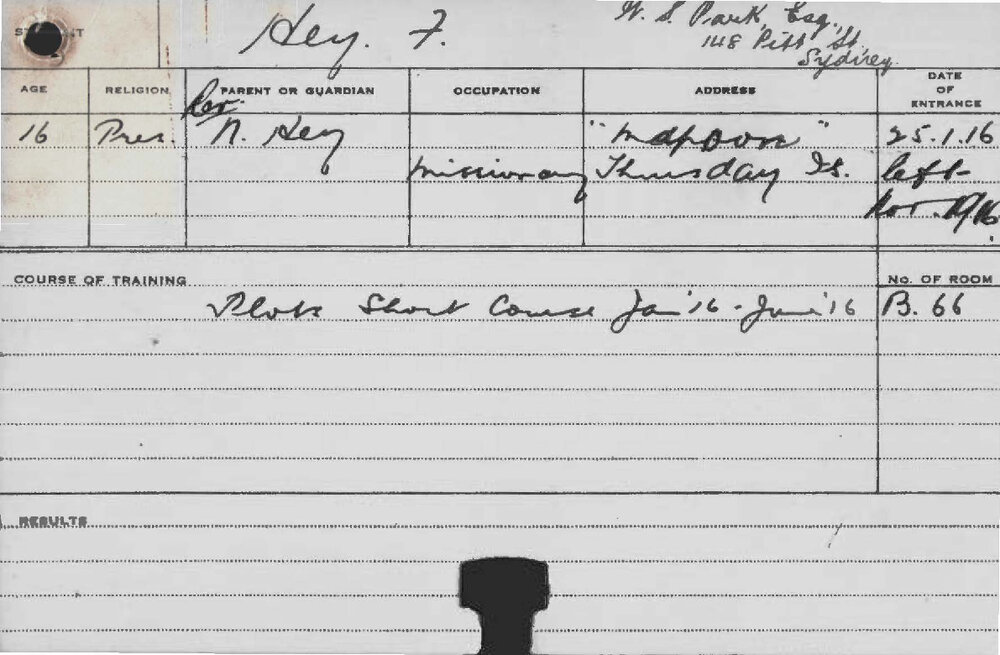 Hey. F.
W. S. Park, Esq.,
148 Pitt St
Sydney
AGE RELIGION PARENT OR GUARDIAN OCCUPATION ADDRESS DATE OF ENTRANCE
Rev.
16 Pres. N. Hey "Mapoon" 25.1.16
missionary Thursday Is. left
Nov. 1916.
COURSE OF TRAINING No. OF ROOM
Short Course Jan '16 - June '16 B. 66
RESULTS